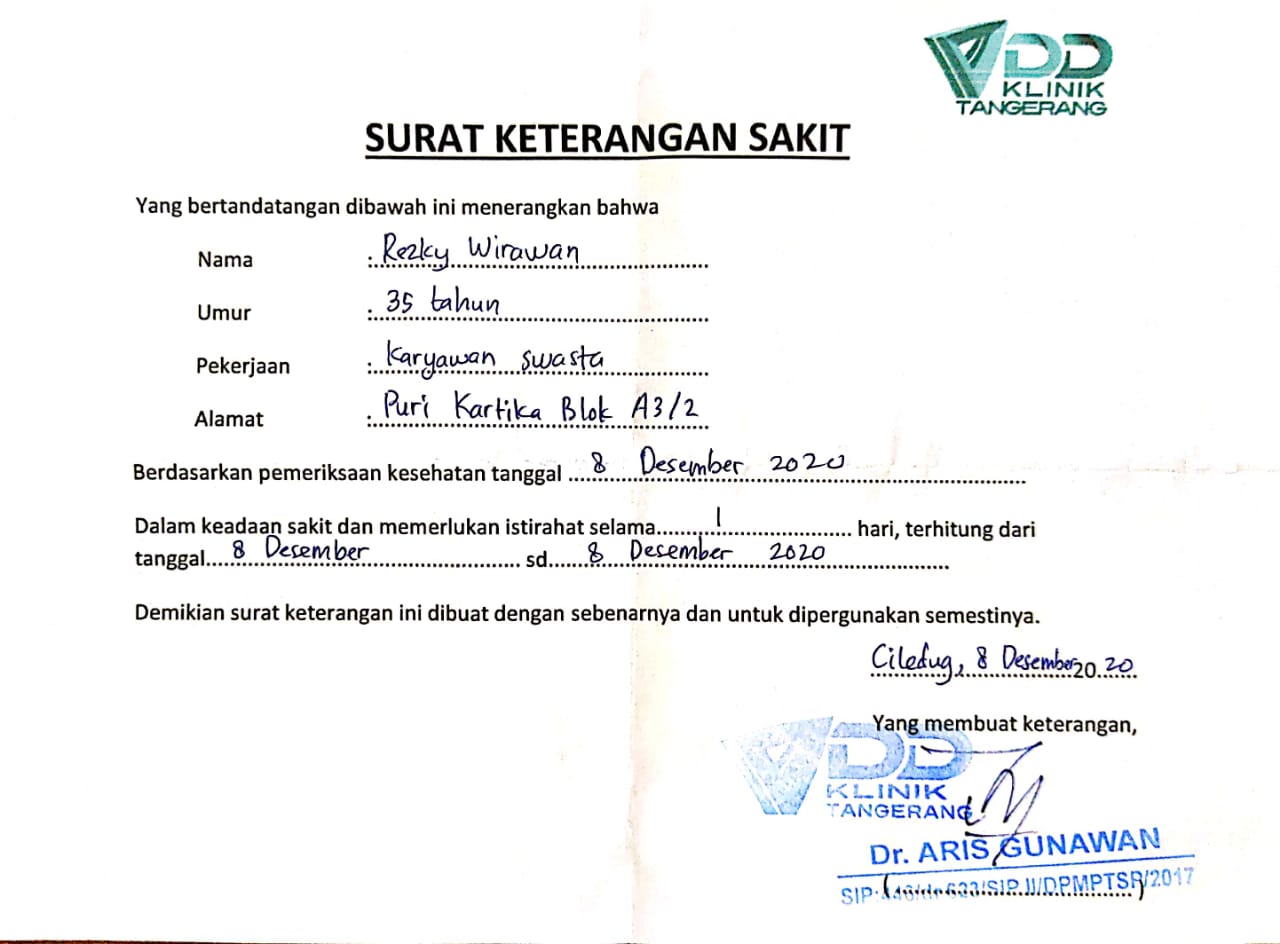 DD
KLINIK
TANGERANG
SURAT KETERANGAN SAKIT
Yang bertandatangan dibawah ini menerangkan bahwa
Nama : Rezky Wirawan
Umur : 35 tahun
Pekerjaan : Karyawan swasta
Alamat : Puri Kartika Blok A3/2
Berdasarkan pemeriksaan kesehatan tanggal 8 Desember 2020
Dalam keadaan sakit dan memerlukan istirahat selama 1 hari, terhitung dari
tanggal 8 Desember sd 8 Desember 2020
Demikian surat keterangan ini dibuat dengan sebenarnya dan untuk dipergunakan semestinya.
Ciledug, 8 Desember 2020
Yang membuat keterangan,
DD
KLINIK
TANGERANG
Dr. ARIS GUNAWAN